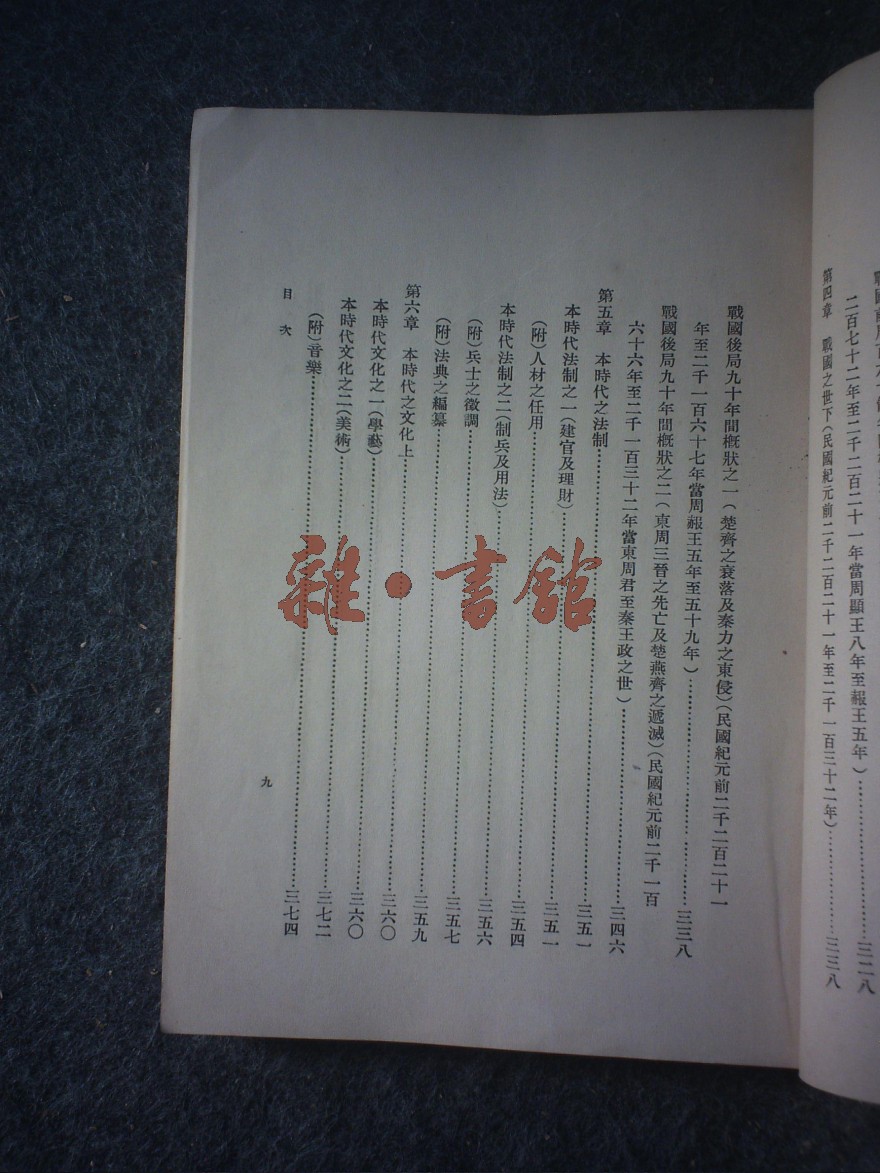 二百七十二年至二千二百二十一年當周顯王八年至赧王五年)……三二八
第四章 戰國之世下(民國紀元前二千二百二十一年至二千一百三十二年)……三三八
戰國後局九十年間概狀之一(楚齊之衰落及秦力之東侵)(民國紀元前二千二百二十一
年至二千一百六十七年當周赧王五年至五十九年)……三三八
戰國後局九十年間概狀之二(東周三晉之先亡及楚燕齊之遞滅)(民國紀元前二千一百
六十六年至二千一百三十二年當東周君至秦王政之世)……三四六
第五章 本時代之法制……三五一
本時代法制之一(建官及理財)……三五一
(附)人材之任用……三五四
本時代法制之二(制兵及用法)……三五六
(附)兵士之徵調……三五七
(附)法典之編纂……三五九
第六章 本時代之文化上……三六〇
本時代文化之一(學藝)……三六〇
本時代文化之二(美術)……三七二
(附)音樂……三七四
目次
九
雜·書館